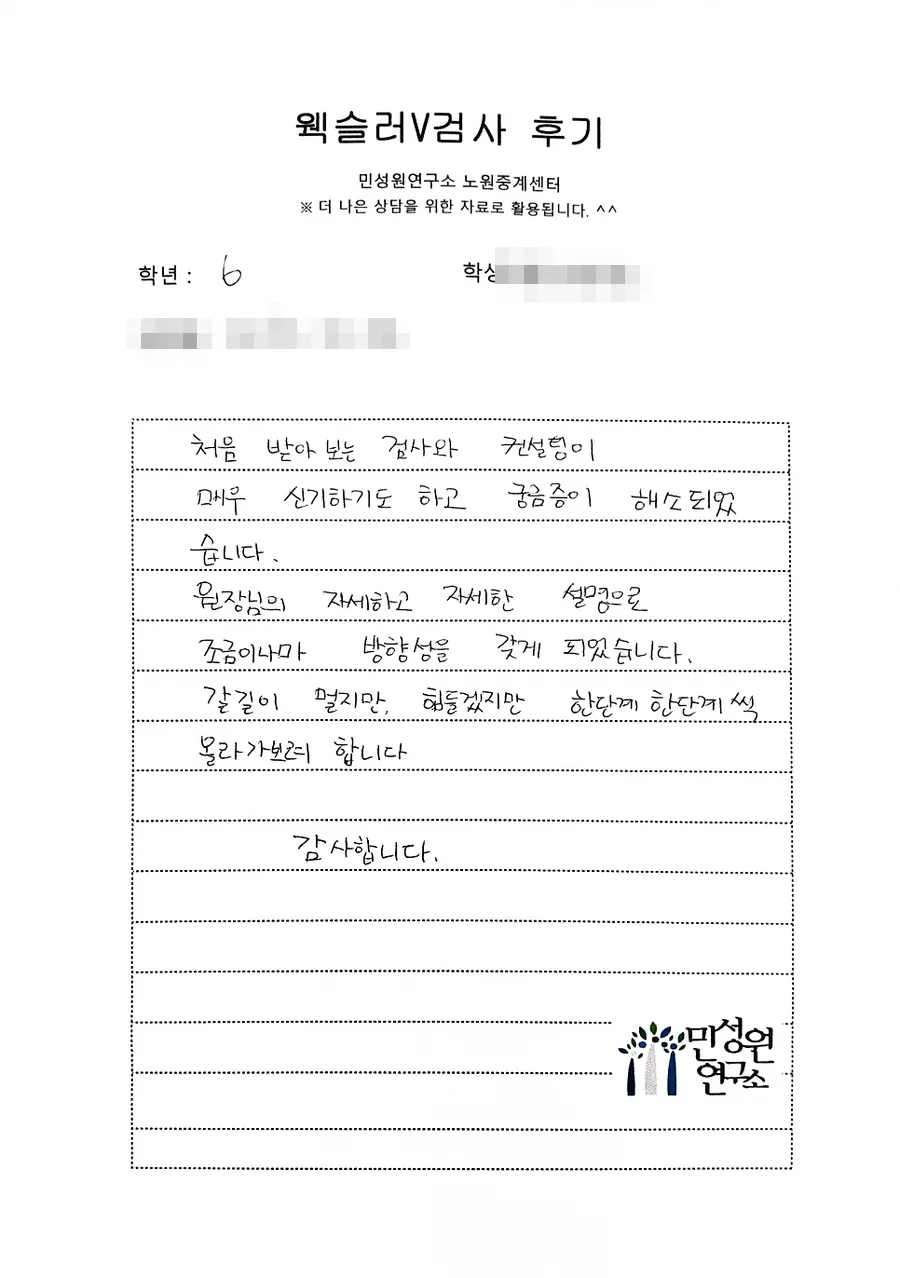 웩슬러V검사 후기
민성원연구소 노원중계센터
※ 더 나은 상담을 위한 자료로 활용됩니다. ^^
학년 : 6 학생
처음 받아 보는 검사와 컨설팅이
매우 신기하기도 하고 궁금증이 해소되었
습니다.
원장님의 자세하고 자세한 설명으로
조금이나마 방향성을 갖게 되었습니다.
갈길이 멀지만, 힘들겠지만 한단계 한단계 씩
올라가보려 합니다
감사합니다.
민성원
연구소